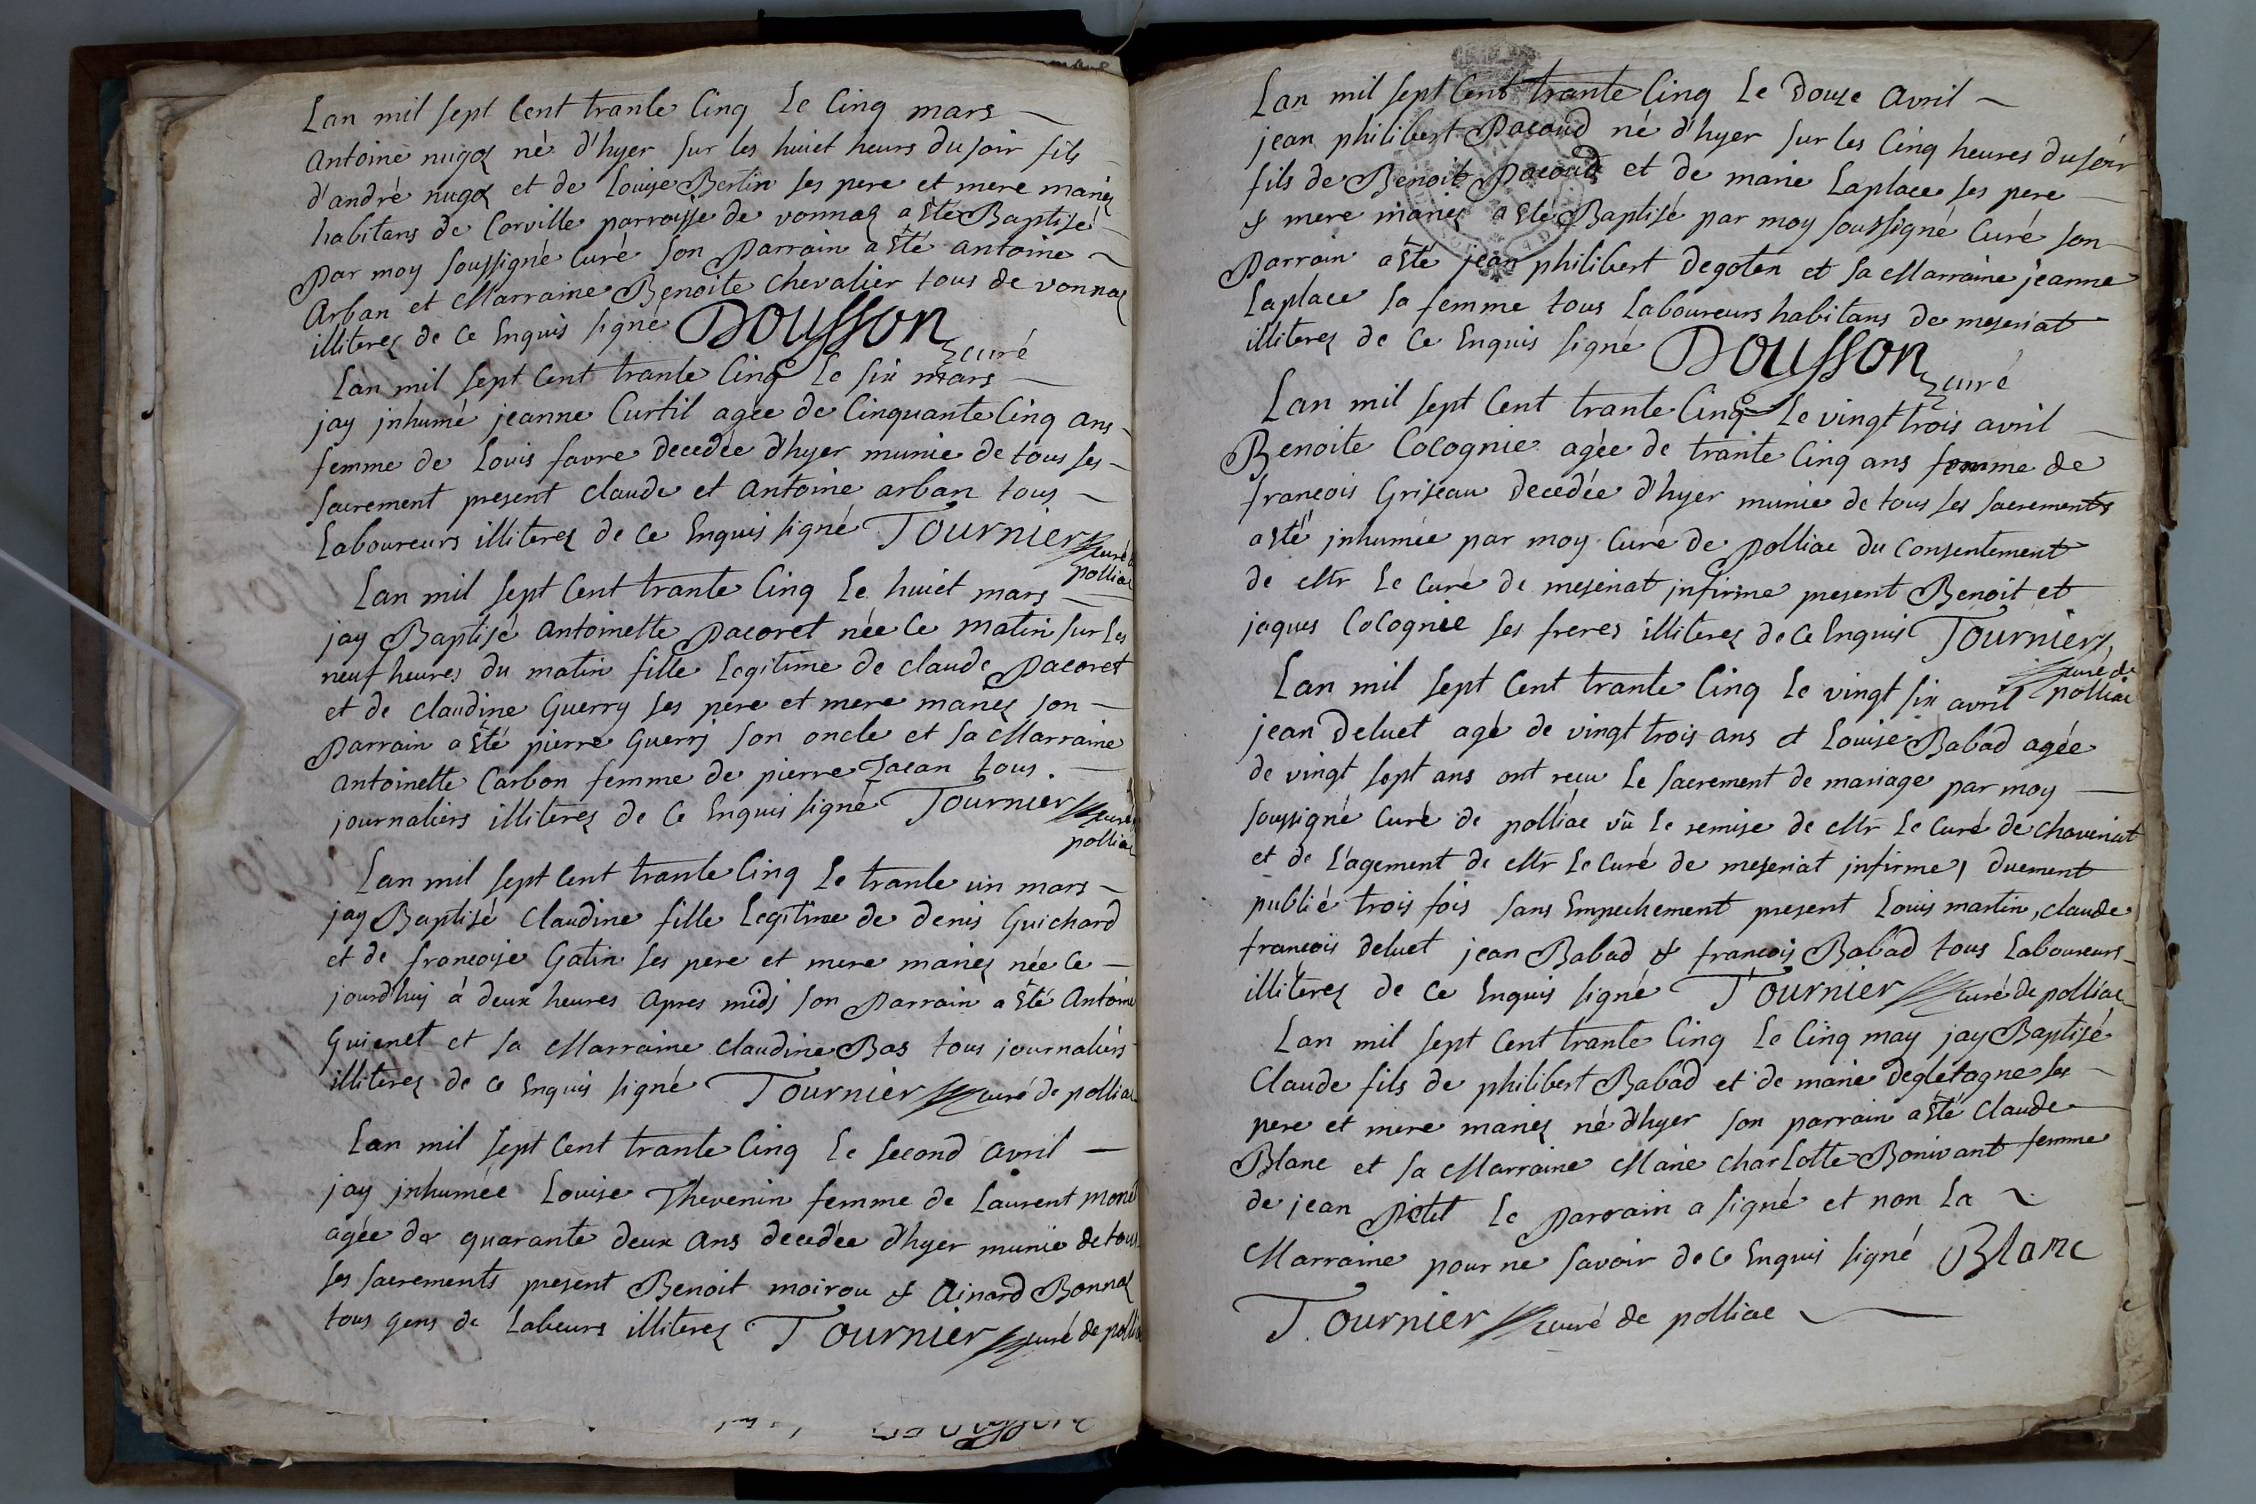 Lan mil sept Cent trante Cinq Le Cinq mars
Antoine nugoz né d'hyer sur les huict heurs du soir fils
d'andré nugoz et de Louise Bertin ses pere et mere mariez
habitans de Corville parroisse de vonnaz a êté Baptisé
par moy soussigné Curé Son parrain a êté antoine
Arban et Marraine Benoite Chevalier tous de vonnaz
illiterez de Ce Enquis signé Dousson curé
Lan mil sept Cent trante Cinq Le six mars
jay jnhumé jeanne Curtil agée de Cinquante Cinq ans
femme de Louis favre decedée d'hyer munie de tous ses
sacrement present claude et antoine arban tous
Laboureurs illiterez de Ce Enquis signé Tournier curé
polliac
Lan mil sept Cent trante Cinq Le huict mars
jay Baptisé antoinette pacoret née Ce matin sur Les
neuf heures du matin fille Legitime de claude pacoret
et de claudine Guerry ses pere et mere mariez son
parrain a êté pierre Guerrj son oncle et sa Marraine
antoinette Carbon femme de pierre Jacan tous
journaliers illiterez de Ce Enquis signé Tournier curé
polliac
Lan mil sept Cent trante Cinq Le trante un mars
jay Baptisé Claudine fille Legitime de denis Guichard
et de francoise Gatin ses pere et mere mariez née Ce
jourd'huj à deux heures apres midj son parrain a êté Antoine
Guienet et sa Marraine claudine Bas tous journaliers
illiterez de Ce Enquis signé Tournier curé de polliac
Lan mil sept Cent trante Cinq Le second avril
jay jnhumée Louise Thevenin femme de Laurent moné
agée de quarante deux ans decedée d'hyer munie de tous
ses sacrements present Benoit moirou & Ainard Bonnaz
tous gens de Labeurs illiterez Tournier curé de polliac
Lan mil sept Cent trante Cinq Le douze Avril
jean philibert pacoud né d'hyer sur les Cinq heures du soir
fils de Benoit pacoud et de marie Laplace ses pere
& mere mariez a êté Baptisé par moy soussigné Curé son
parrain a êté jean philibert degoten et sa Marraine jeanne
Laplace sa femme tous Laboureurs habitans de meseriat
illiterez de Ce Enquis signé Dousson curé
Lan mil sept Cent trante Cinq Le vingt trois avril
Benoite Cocognie agée de trante Cinq ans femme de
françois Griseau decedée d'hyer munie de tous ses sacrements
a êté jnhumée par moy Curé de polliac du Consentement
de Mr Le Curé de meseriat jnfirme present Benoit et
jaques Cocognie ses freres illiterez de Ce Enquis Tournier
curé de
polliac
Lan mil sept Cent trante Cinq Le vingt six avril
jean deluet agé de vingt trois ans et Louise Babad agée
de vingt sept ans ont recu Le sacrement de mariage par moy
soussigné Curé de polliac vû Le remise de Mr Le Curé de chaveriat
et de L'agement de Mr Le Curé de meseriat jnfirme, duement
publié trois fois sans Empechement present Louis martin, claude
francois deluet jean Babad & francois Babad tous Laboureurs
illiterez de Ce Enquis signé Tournier curé de polliac
Lan mil sept Cent trante Cinq Le Cinq may jay Baptisé
Claude fils de philibert Babad et de marie degletagne ses
pere et mere mariez né d'hyer son parrain a êté Claude
Blanc et sa Marraine Marie charlotte Bonivant femme
de jean petit Le parrain a signé et non La
Marraine pour ne savoir de Ce Enquis signé Blanc
Tournier curé de polliac